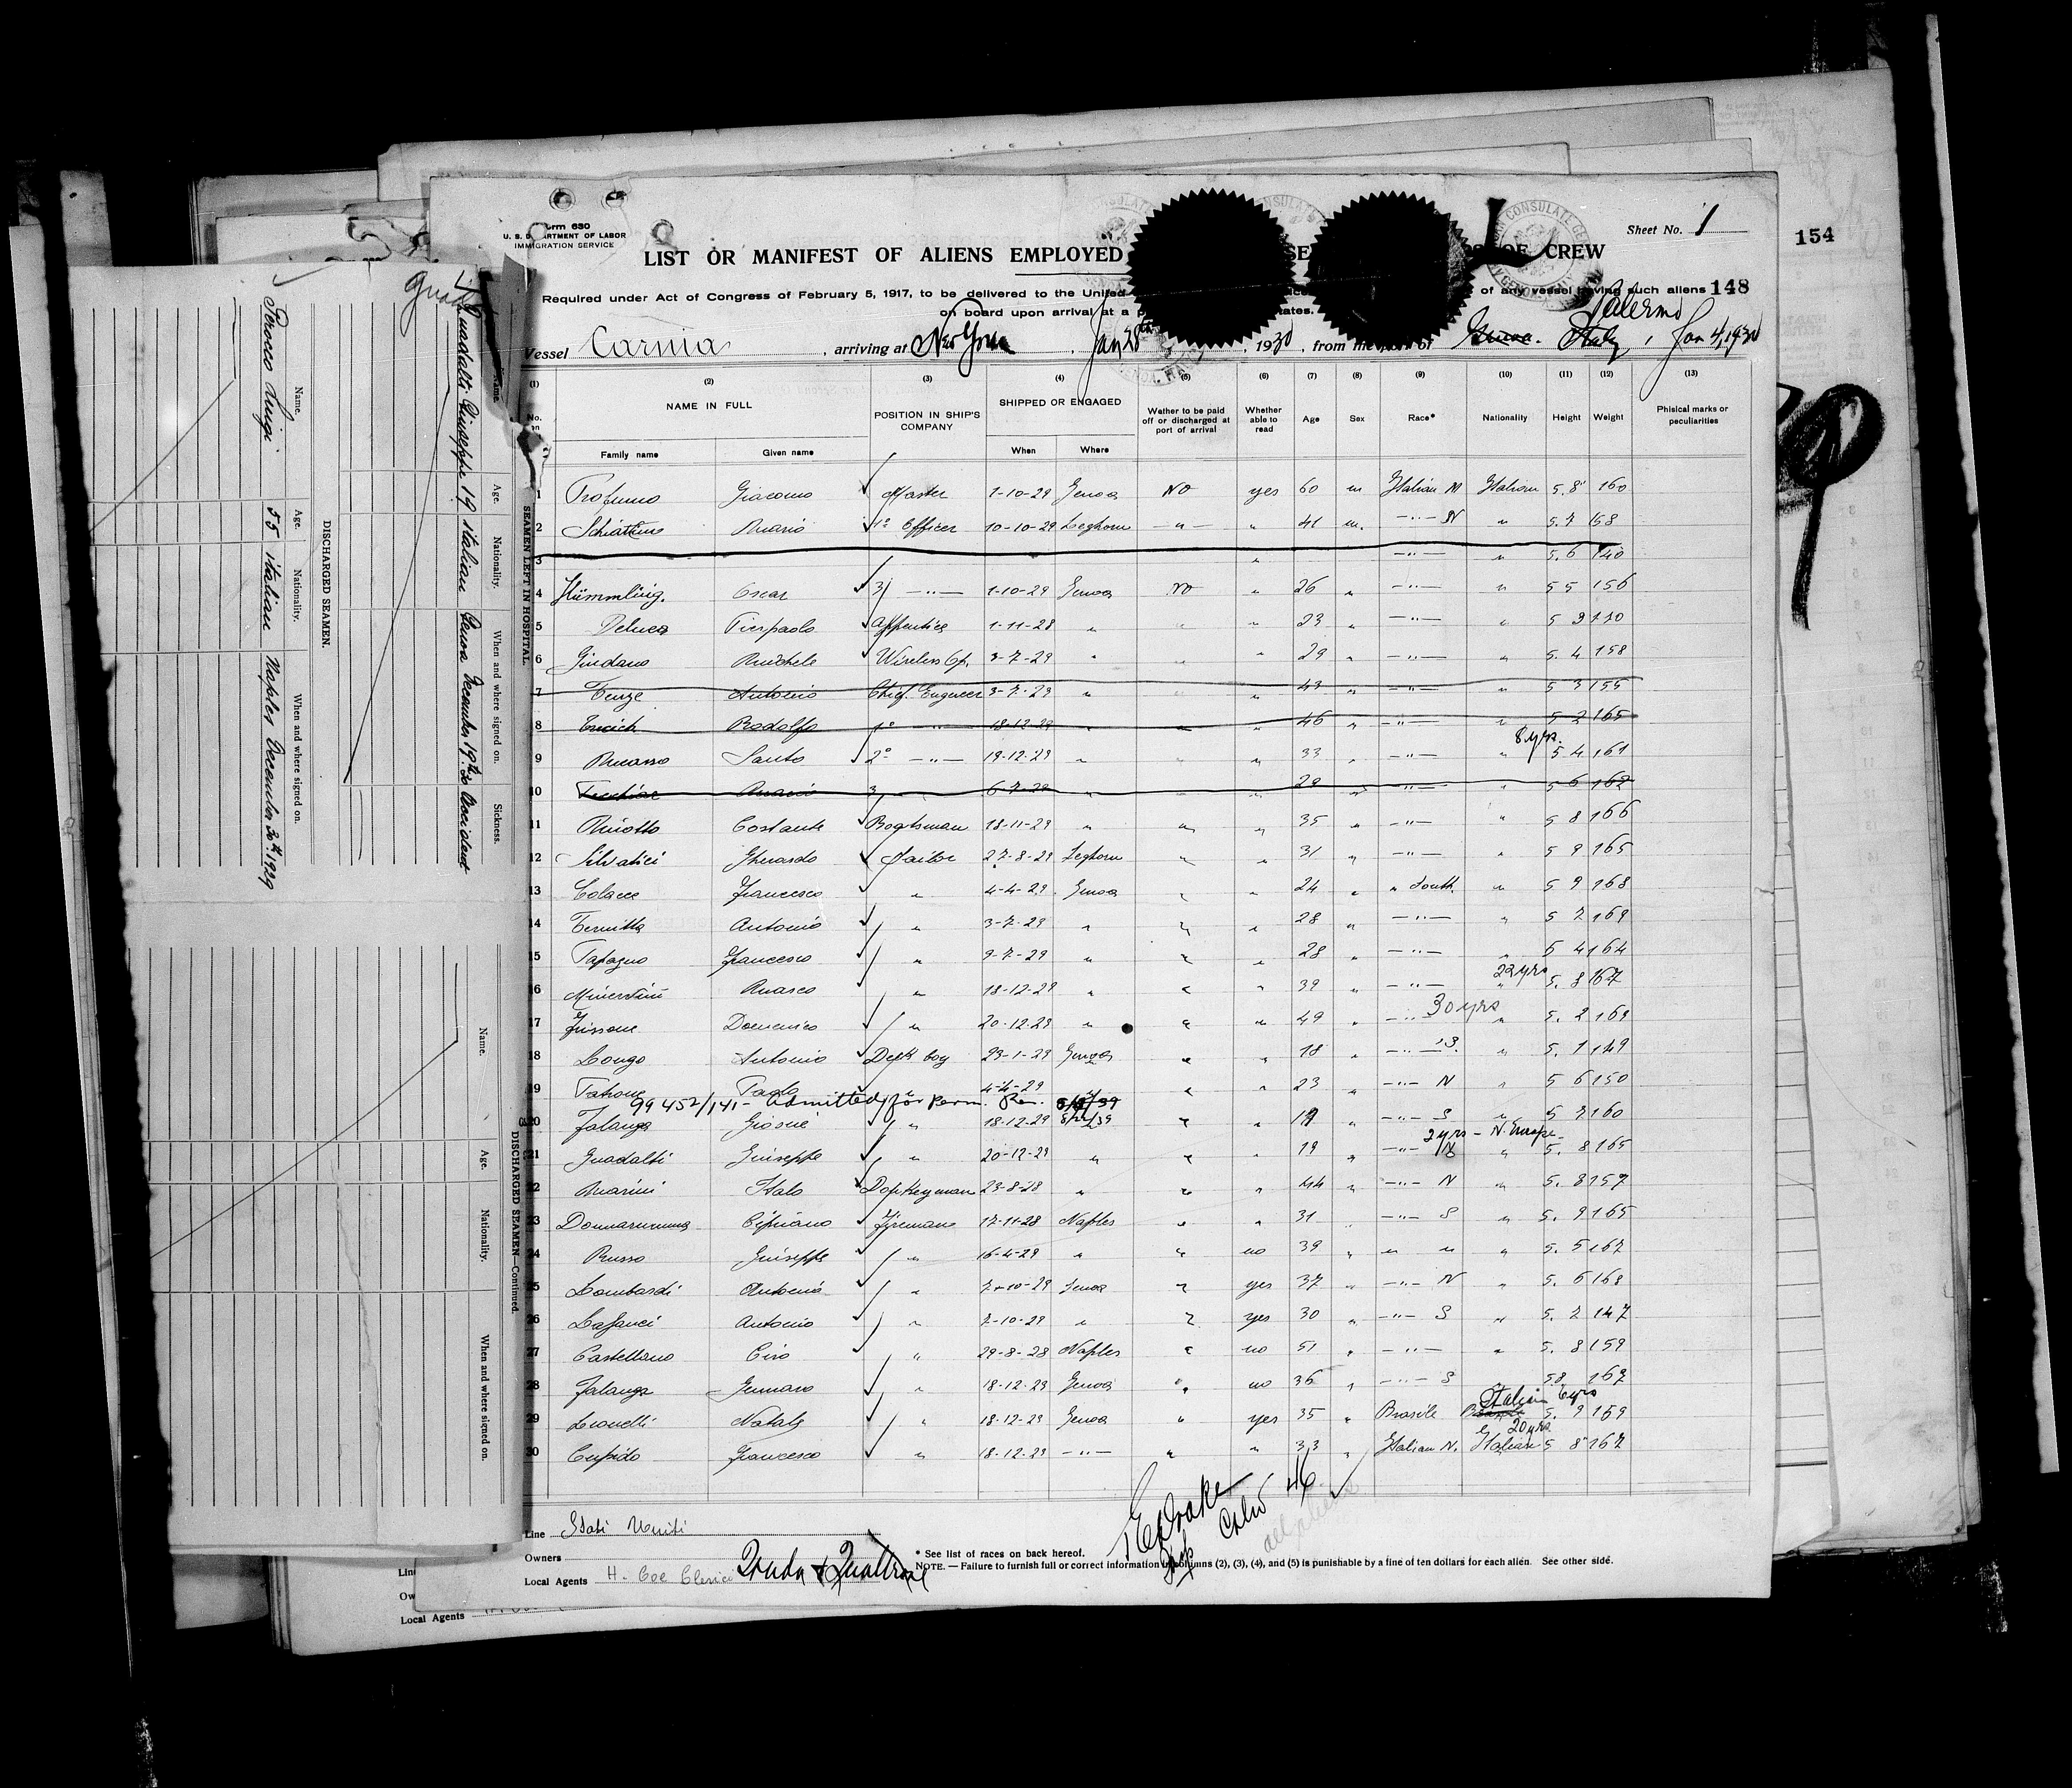 154
Form 630
U. S. DEPARTMENT OF LABOR
IMMIGRATION SERVICE
Sheet No. 1
LIST OR MANIFEST OF ALIENS EMPLOYED OF CREW
Required under Act of Congress of February 5, 1917, to be delivered to the United of any vessel having such aliens 148
on board upon arrival at a
Palermo
Vessel Carnia, arriving at New York, Jan 28th, 1930, from the port of Genoa. Italy, Jan 4, 1930
(1) (2) (3) (4) (5) (6) (7) (8) (9) (10) (11) (12) (13)
NAME IN FULL POSITION IN SHIP'S COMPANY SHIPPED OR ENGAGED Wether to be paid off or discharged at port of arrival Whether able to read Age Sex Race* Nationality Height Weight Phisical marks or peculiarities
Family name Given name When Where
1 Profumo Giacomo Master 1-10-29 Genoa NO yes 60 m Italian N Italian 5.8 160
2 Schiattino Mario 1° Officer 10-10-29 Leghorn -"- " 41 m. -"- N " 5.7 158
3 " -"- " 5.6 140
4 Hümmling. Oscar 3 -"- 1-10-29 Genoa NO " 26 " -"- " 5 5 156
5 Deluca Pierpaolo Apprentice 1-11-28 " " " 23 " -"- "
6 Giordano Michele Wireless Op. 3-7-29 " " " 29 " -"- " 5. 4 158
7 Antonio Chief. Engineer 3-7-29 " " " 43 " -"- " 5 3 155
8 Rodolfo 1° " 18-12-29 " " " 46 " -"- " 5 2 165
8 yrs.
9 Santo 2° -"- 19-12-29 " " " 33 " -"- " 5 4 161
10 Mario 3 " 6-7-29 " " " 29 " -"- " 5 6 162
11 Miotto Costante Boatsman 18-11-29 " " " 35 " -"- " 5 8 166
12 Silvatici Gherardo Sailor 27-8-29 Leghorn " " 31 " -"- " 5 9 165
13 Colacce Francesco " 4-4-29 Genoa " " 24 " " South " 5 9 168
14 Ternitta Antonio " 3-7-29 " " " 28 " -"- " 5 7 169
15 Tapagno Francesco " 9-7-29 " " " 28 " -"- 5 4 164
22 yrs
16 Minervini Marco " 18-12-29 " " " 39 " -"- " 5. 8 167
30 yrs
17 Frissone Domenico " 20-12-29 " " " 49 " -"- " 5. 2 169
18 Longo Antonio Deck boy 29-1-29 Genoa " " 18 " -"- S. " 5. 1 149
19 Patrone Paolo " 4-4-29 " " 23 " -"- N " 5 6 150
99452/141- Admitted for Perm. Res. 5/2/39
20 Falanga Giosue " 18-12-29 8/22/39 " " 19 " -"- S " 5 7 160
2 yrs - N. Europe
21 Guadalti Giuseppe " 20-12-29 " " " 19 " -"- N " 5. 8 165
22 Marini Italo Donkeyman 23-8-28 " " " 44 " -"- N " 5. 8 157
23 Donnarumma Cipriano Fireman 17-11-28 Naples " " 31 " -"- S " 5. 9 165
24 Russo Giuseppe " 16-4-29 " " no 39 " " " " 5. 5 167
25 Lombardi Antonio " 7-10-29 Genoa " yes 37 " -"- N " 5. 6 168
26 Lafauci Antonio " 7-10-29 " " yes 30 " -"- S " 5. 2 147
27 Castellano Ciro " 29-8-28 Naples " no 51 " -"- " 5. 8 159
28 Falanga Gennaro " 18-12-29 Genoa " no 36 " -"- S 5.8. 167
Italian 6 yrs
29 Lionelli Natale " 18-12-29 Genoa " yes 35 " Brasile 5. 9 159
20 yrs
30 Cupido Francesco " 18-12-29 -"- " " 33 " Italian N. Italian 5 8 167
Line Stati Uniti
Owners
Local Agents
* See list of races on back hereof.
NOTE. — Failure to furnish full or correct information in columns (2), (3), (4), and (5) is punishable by a fine of ten dollars for each alien. See other side.
46
Local Agents
SEAMEN LEFT IN HOSPITAL.
Name. Age. Nationality. When and where signed on. Sickness.
Guadalti Giuseppe 19 italian Genoa December 19th Accident
DISCHARGED SEAMEN.
Name. Age. Nationality. When and where signed on.
Perocco Luigi 55 italian Naples December 20th 1929
DISCHARGED SEAMEN—Continued.
Name. Age. Nationality. When and where signed on.